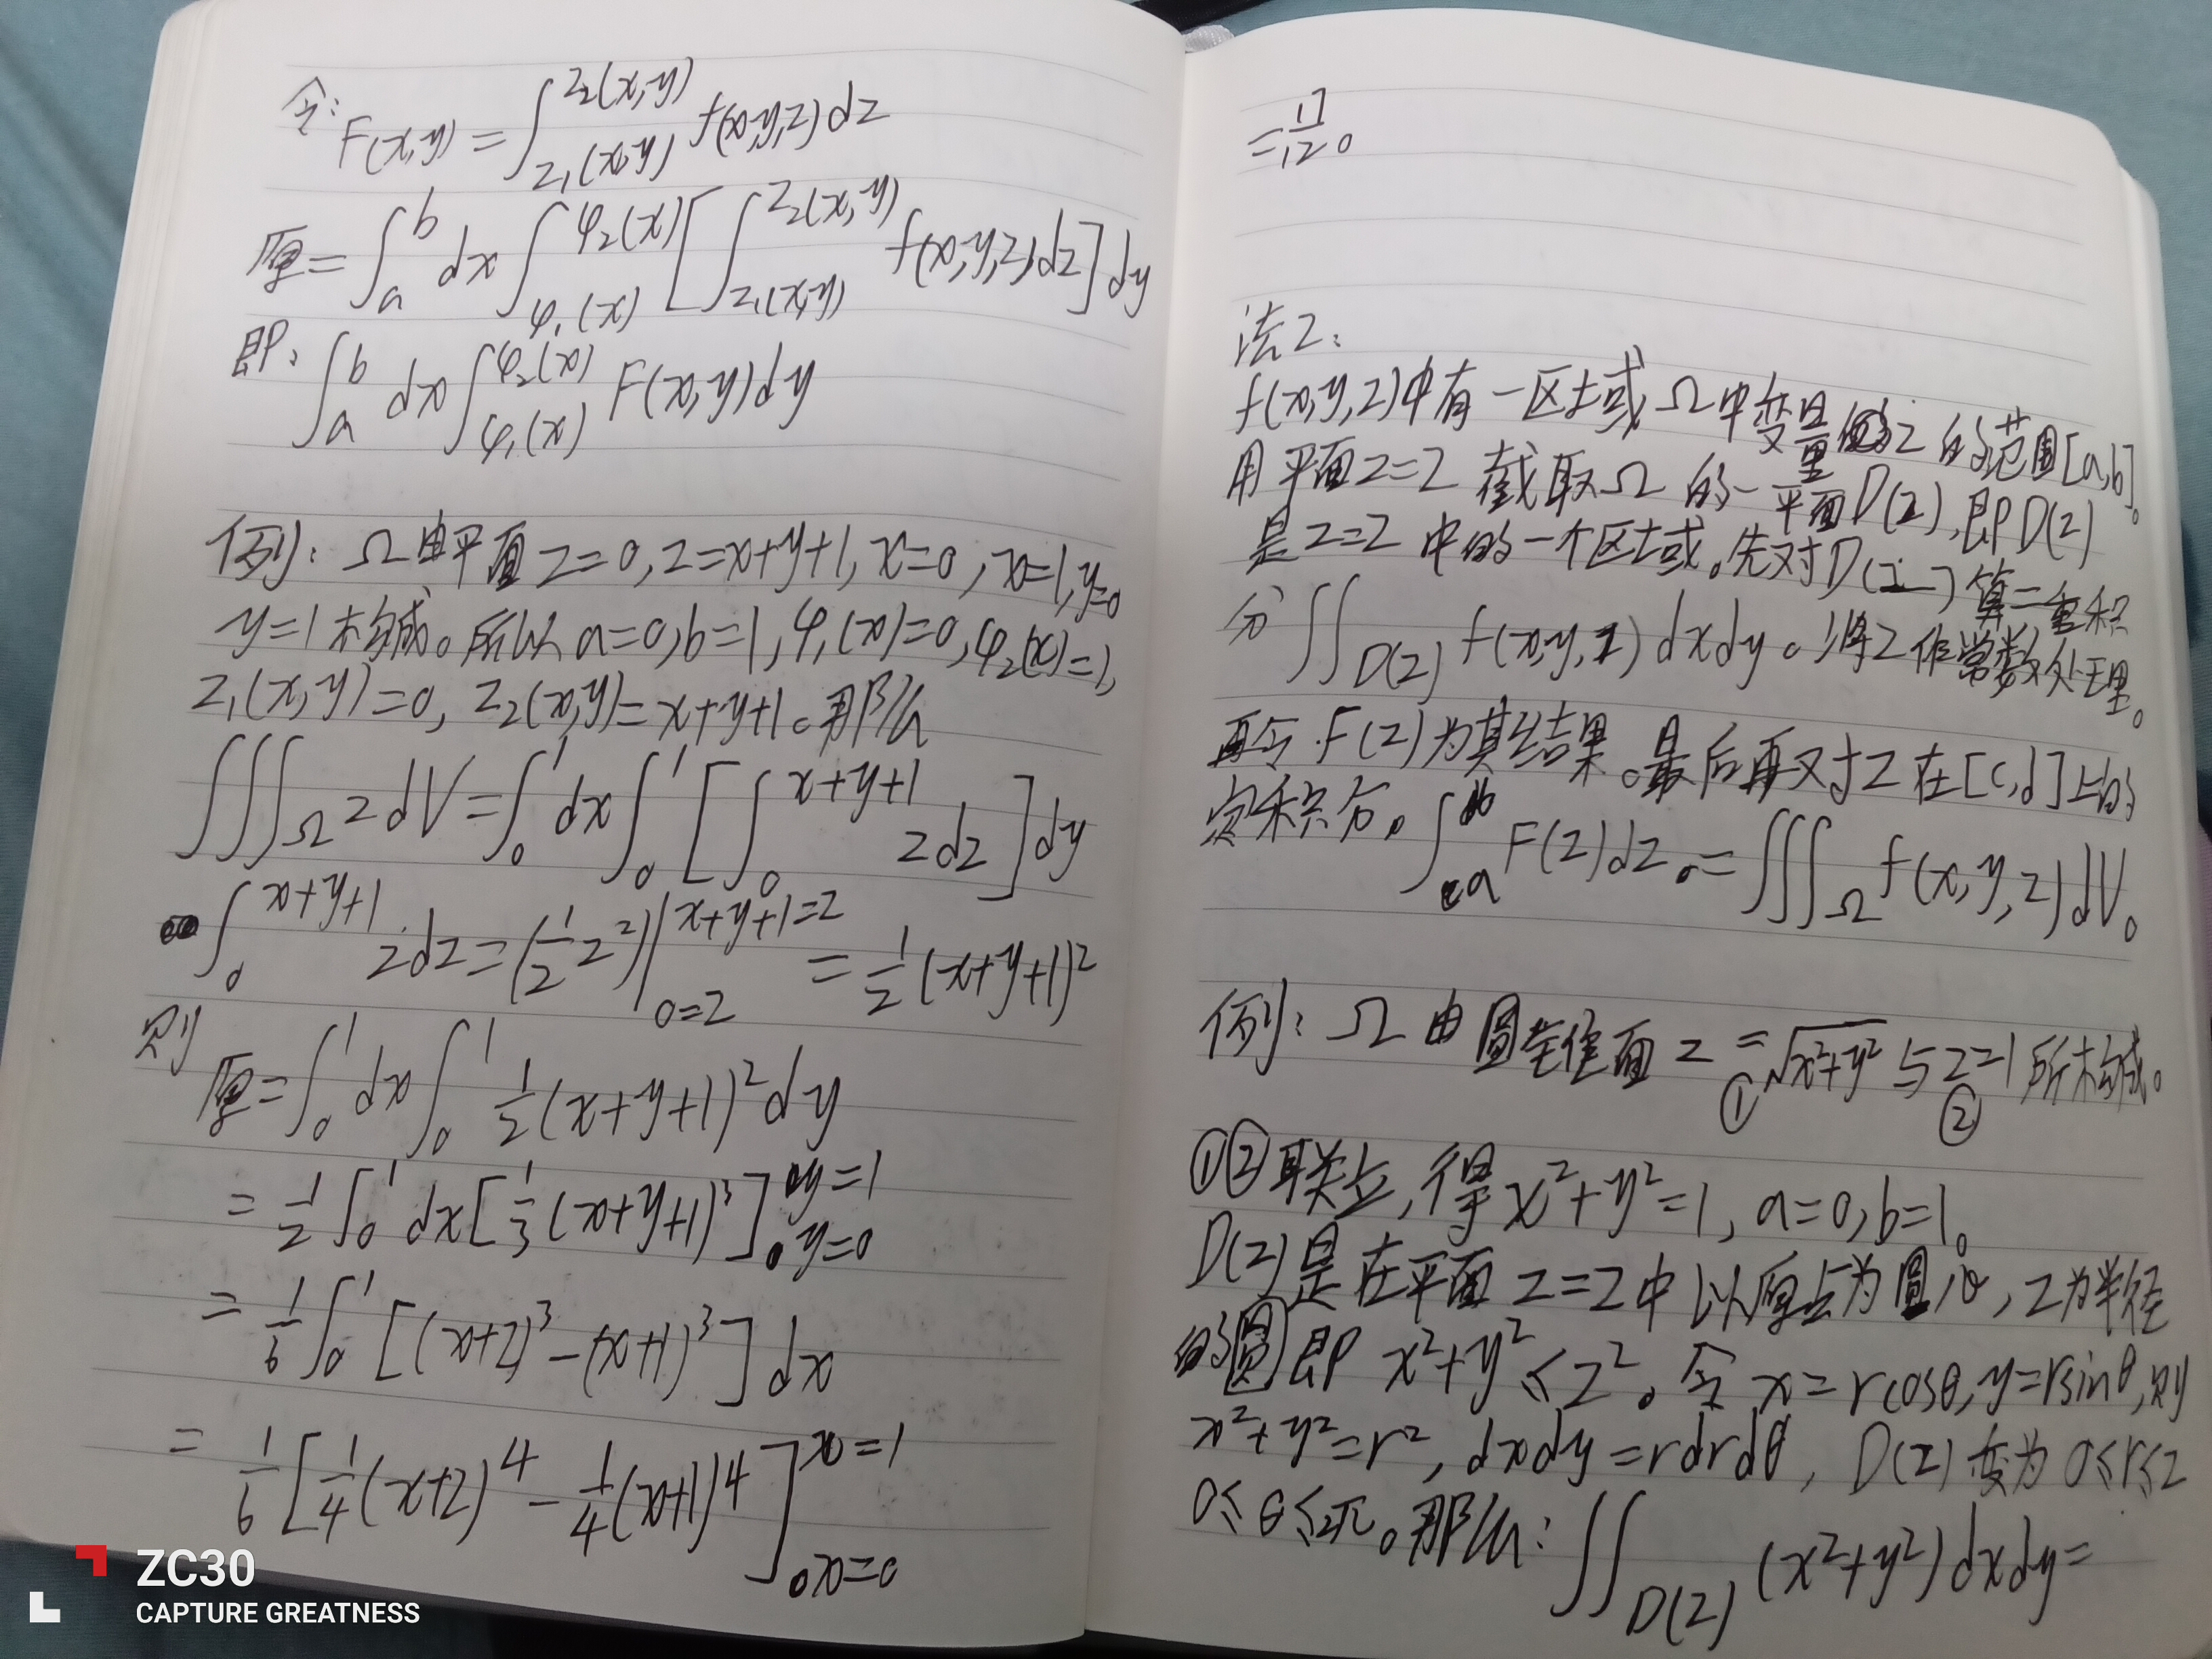 令:
F(x,y) = ∫_{z₁(x,y)}^{z₂(x,y)} f(x,y,z)dz
原 = ∫_a^b dx ∫_{φ₁(x)}^{φ₂(x)} [∫_{z₁(x,y)}^{z₂(x,y)} f(x,y,z)dz] dy
即: ∫_a^b dx ∫_{φ₁(x)}^{φ₂(x)} F(x,y)dy
例: Ω由平面z=0, z=x+y+1, x=0, x=1, y=0
y=1构成。所以a=0,b=1,φ₁(x)=0,φ₂(x)=1,
z₁(x,y)=0, z₂(x,y)=x+y+1。那么
∭_Ω zdV = ∫_0^1 dx ∫_0^1 [∫_0^{x+y+1} zdz] dy
∫_0^{x+y+1} zdz = (1/2 z²)|_{0=z}^{x+y+1=z} = 1/2 (x+y+1)²
则
原 = ∫_0^1 dx ∫_0^1 1/2 (x+y+1)² dy
= 1/2 ∫_0^1 dx [1/3 (x+y+1)³]_{y=0}^{y=1}
= 1/6 ∫_0^1 [(x+2)³ - (x+1)³] dx
= 1/6 [1/4 (x+2)⁴ - 1/4 (x+1)⁴]_{x=0}^{x=1}
ZC30
CAPTURE GREATNESS
= 17/12。
法2:
f(x,y,z)中有一区域Ω中变量z的范围[a,b]。
用平面z=z截取Ω的一平面D(z),即D(z)
是z=z中的一个区域。先对D(z)算二重积
分∬_{D(z)} f(x,y,z)dxdy。将z作常数处理。
再令F(z)为其结果。最后再对z在[c,d]上的
定积分。∫_a^b F(z)dz = ∭_Ω f(x,y,z)dV。
例: Ω由圆锥面z=√(x²+y²)与z=1所构成。
① ②
①②联立,得x²+y²=1, a=0,b=1。
D(z)是在平面z=z中以原点为圆心,z为半径
的圆即x²+y²≤z²。令x=rcosθ,y=rsinθ,则
x²+y²=r², dxdy=rdrdθ, D(z)变为0≤r≤z
0≤θ≤2π。那么: ∬_{D(z)} (x²+y²)dxdy=